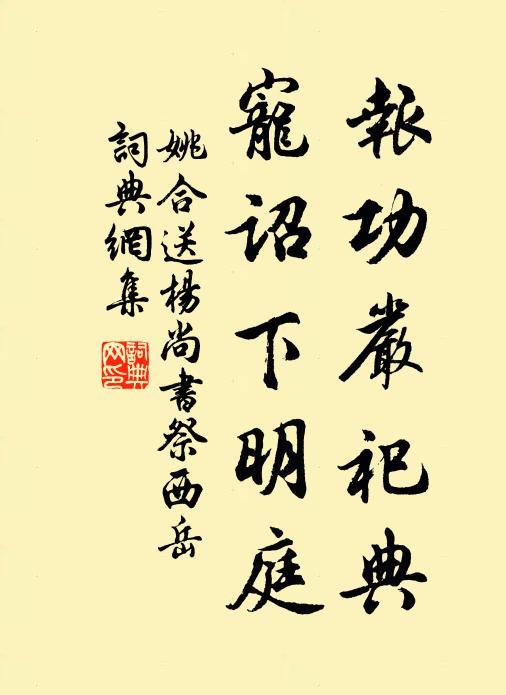 報功嚴祀典
寵詔下明庭
姚合送楊尚書祭西岳
詞典網集
詞典网印